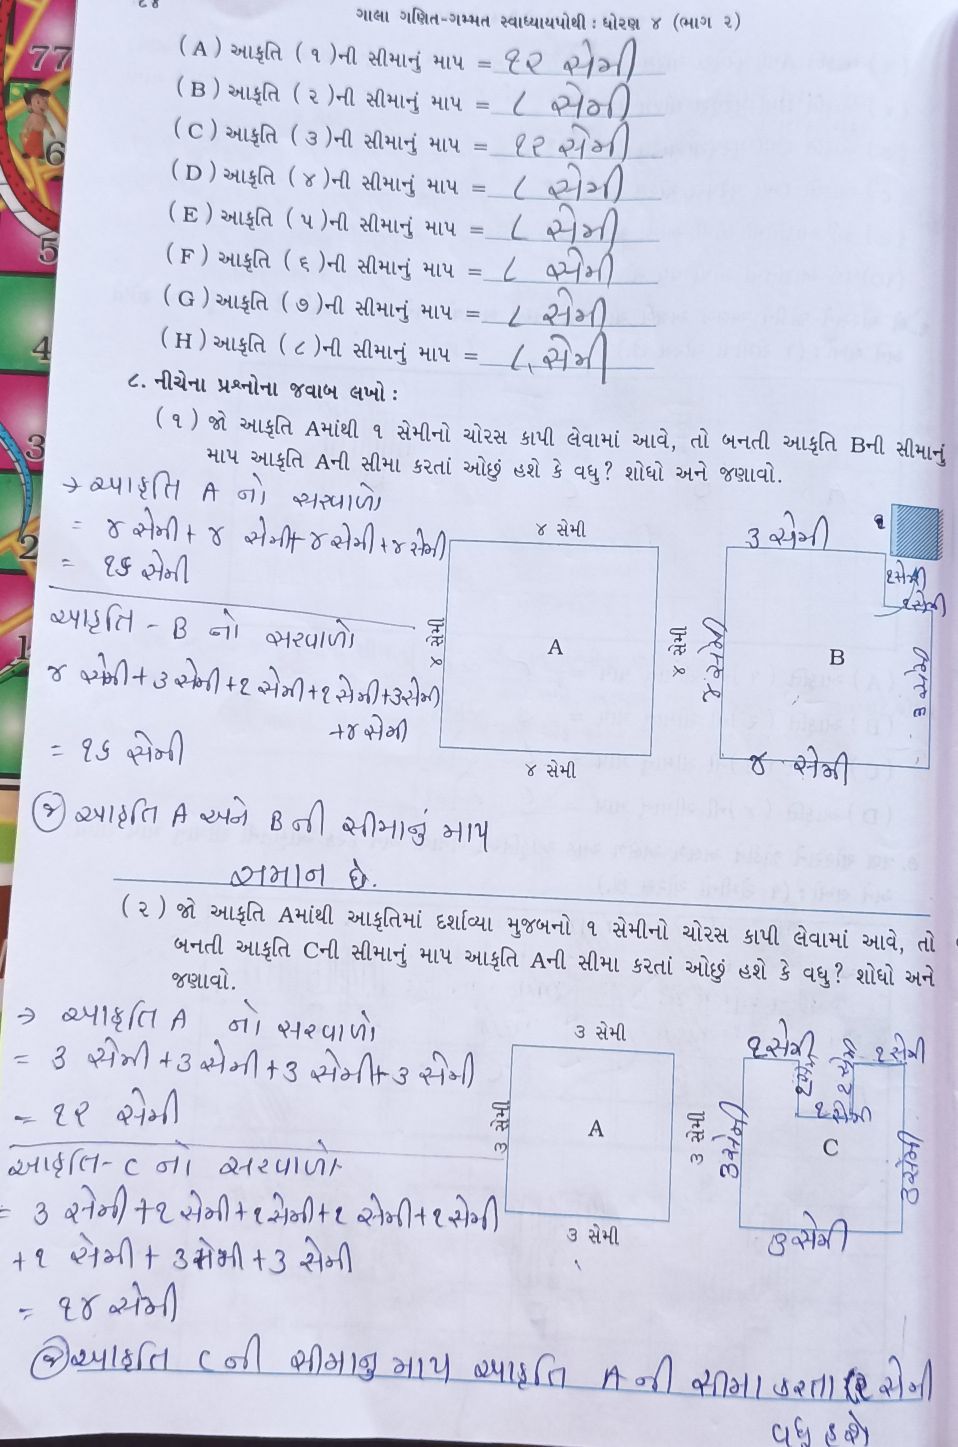 ગાલા ગણિત-ગમ્મત સ્વાધ્યાયપોથી : ધોરણ ૪ (ભાગ ૨)
77
6
5
4
3
2
1
(A) આકૃતિ (૧)ની સીમાનું માપ = ૧૨ સેમી
(B) આકૃતિ (૨)ની સીમાનું માપ = ૮ સેમી
(C) આકૃતિ (૩)ની સીમાનું માપ = ૧૨ સેમી
(D) આકૃતિ (૪)ની સીમાનું માપ = ૮ સેમી
(E) આકૃતિ (૫)ની સીમાનું માપ = ૮ સેમી
(F) આકૃતિ (૬)ની સીમાનું માપ = ૮ સેમી
(G) આકૃતિ (૭)ની સીમાનું માપ = ૮ સેમી
(H) આકૃતિ (૮)ની સીમાનું માપ = ૮ સેમી
૮. નીચેના પ્રશ્નોના જવાબ લખો :
(૧) જો આકૃતિ Aમાંથી ૧ સેમીનો ચોરસ કાપી લેવામાં આવે, તો બનતી આકૃતિ Bની સીમાનું
માપ આકૃતિ Aની સીમા કરતાં ઓછું હશે કે વધુ? શોધો અને જણાવો.
→ આકૃતિ A નો સરવાળો
= ૪ સેમી + ૪ સેમી + ૪ સેમી + ૪ સેમી
= ૧૬ સેમી
આકૃતિ - B નો સરવાળો
૪ સેમી + ૩ સેમી + ૧ સેમી + ૧ સેમી + ૩ સેમી
+ ૪ સેમી
= ૧૬ સેમી
૪ સેમી
૪ સેમી
A
૪ સેમી
૪ સેમી
૩ સેમી
૧
૧ સેમી
૧ સેમી
૪ સેમી
B
૩ સેમી
૪ સેમી
જ આકૃતિ A અને B ની સીમાનું માપ
સમાન છે.
(૨) જો આકૃતિ Aમાંથી આકૃતિમાં દર્શાવ્યા મુજબનો ૧ સેમીનો ચોરસ કાપી લેવામાં આવે, તો
બનતી આકૃતિ Cની સીમાનું માપ આકૃતિ Aની સીમા કરતાં ઓછું હશે કે વધુ? શોધો અને
જણાવો.
→ આકૃતિ A નો સરવાળો
= ૩ સેમી + ૩ સેમી + ૩ સેમી + ૩ સેમી
= ૧૨ સેમી
આકૃતિ - C નો સરવાળો
= ૩ સેમી + ૧ સેમી + ૧ સેમી + ૧ સેમી + ૧ સેમી
+ ૧ સેમી + ૩ સેમી + ૩ સેમી
= ૧૪ સેમી
૩ સેમી
૩ સેમી
A
૩ સેમી
૩ સેમી
૧ સેમી
૧ સેમી
૧ સેમી
૧ સેમી
૧ સેમી
૩ સેમી
C
૩ સેમી
૩ સેમી
જ આકૃતિ C ની સીમાનુ માપ આકૃતિ A ની સીમા કરતા ૨ સેમી
વધુ હશે